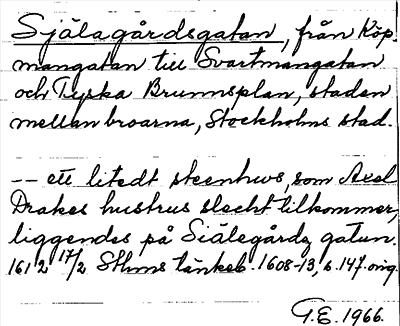 Själagårdsgatan, från Köp-
mangatan till Svartmangatan
och Tyska Brunnsplan, staden
mellan broarna, Stockholms stad.
-- ett litedt steenhws, som Axel
Drakes hustrus slecht tilkommer,
liggendes på Siälegårdz gatun.
1612 17/2 Sthms tänkeb. 1608-13, s. 147. orig.
G.E. 1966.